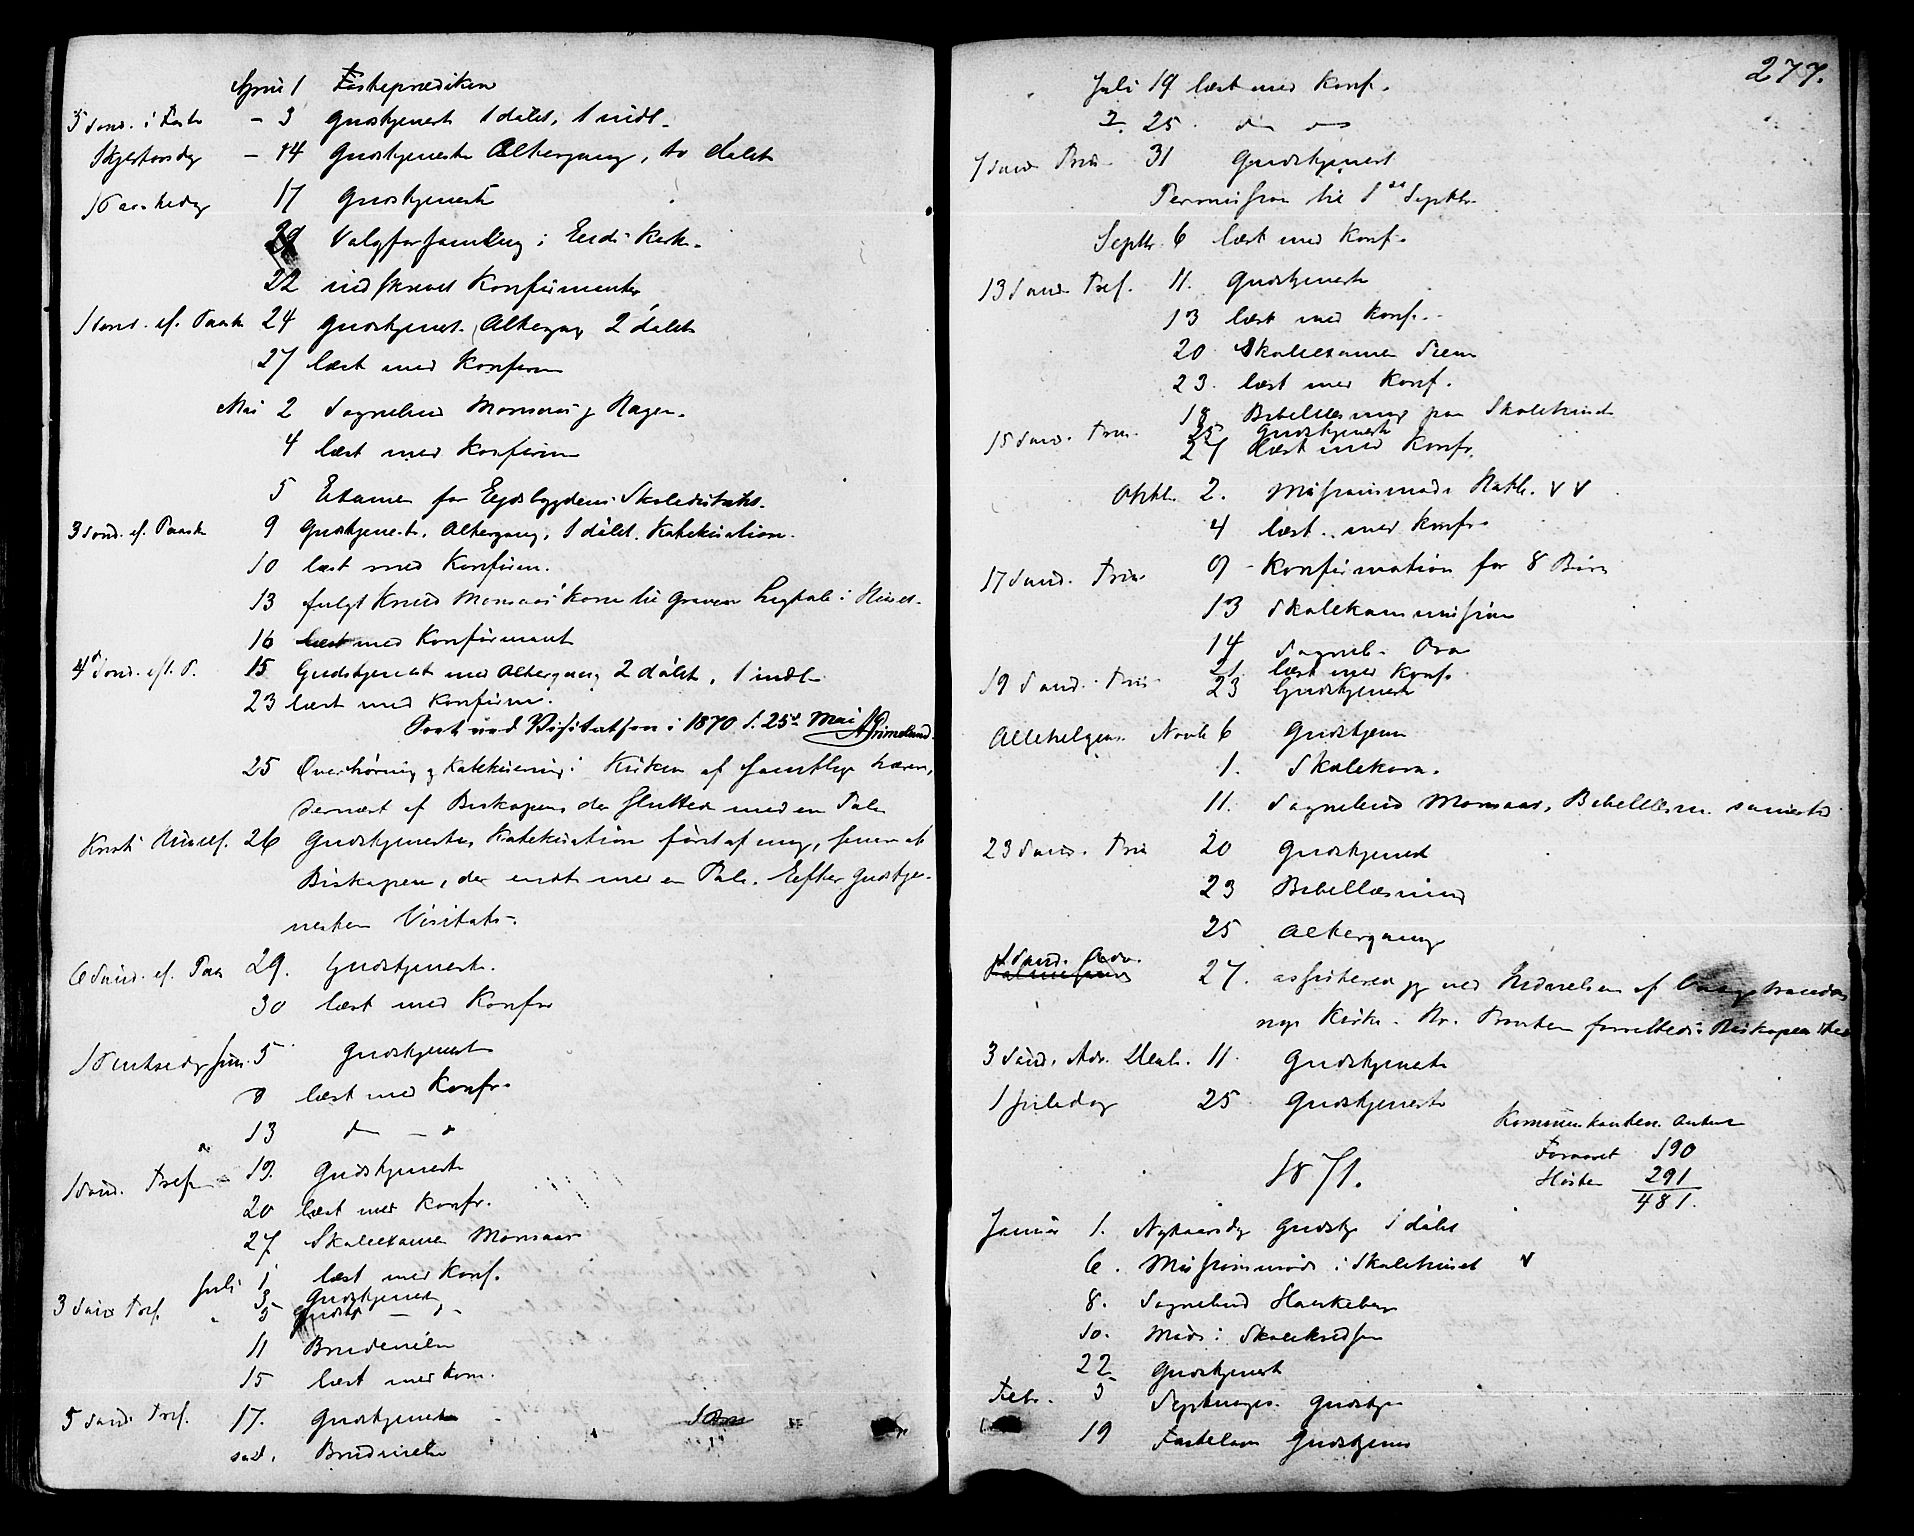 April 1 Fasteprædiken
5 Sønd. i Faste – 3 Gudstjeneste 1 døbt, 1 indl.
Skjertorsdag – 14 Gudstjeneste Altergang, to døbt
1 Paaskedag 17 Gudstjeneste
20 Valgforsamling i Eids Kirke.
22 indskrevet Konfirmanter
1 Sønd. ef. Paaske 24 Gudstjenest. Altergang 2 døbt
27 læst med Konfirm
Mai 2 Sognebud Monsaas og Hagen.
4 læst med Konfirm
5 Examen for Eidsbygdens Skoledistrikt.
3 Sønd. ef. Paaske 9 Gudstjeneste, Altergang, 1 døbt. Katekisation.
10 læst med Konfirm.
13 fulgt Knud Monsaas' Kone til Graven Ligtale i Huset.
16 læst med Konfirmant
4de Sønd. eft. P. 15 Gudstjeneste med Altergang 2 døbt, 1 indl.
23 læst med Konfirm.
Forev. ved Visitatsen i 1870 d. 25de Mai Grimelund.
25 Overhøring og Katekisering i Kirken af samtlige Lærere,
dernæst af Biskopen der sluttede med en Tale
Kristi Himelf. 26 Gudstjeneste, Katekisation først af mig, senere af
Biskopen, der endte med en Tale. Efter Gudstje-
nesten Visitats.
6 Sønd. ef. Paa 29. Gudstjeneste.
30 læst med Konfir
1 Pintsedag Juni 5 Gudstjeneste
8 læst med Konfr.
13 do – o
1 Sønd. Tref. 19. Gudstjeneste
20 læst med Konfr.
27 Skoleexamen Monsaas
Juli 1 læst med Konf.
3 Sønd Tref. 3 Gudstjeneste
11 Brudevielse
15 læst med Kon.
5 Sønd. Tref. 17. Gudstjeneste
sad. Brudevielse
277.
Juli 19 læst med Konf.
25 do do
7 Sønd Trin. 31 Gudstjenest
Permission til 1ste Septbr.
Septbr. 6 læst med Konf.
13 Sønd. Tref. 11. Gudstjeneste
13 læst med Konf.
20 Skoleexamen Seem
23. læst med Konf.
18 Bibellæsning paa Skolehuset
15 Sønd. Trin. 25 Gudstjeneste
27 læst med Konfr.
Oktbr. 2. Missionsmøde v v
4 læst med Konfr.
17 Sønd. Trin 9 Konfirmation for 8 Børn
13 Skolekommission
14 Sogneb.
21. læst med Konf.
19 Sønd. Trin 23 Gudstjeneste
Allehelgens Novbr 6 Gudstjen
1. Skolekom.
11. Sognebud Monsaas, Bibellæsn. samested
23 Sønd. Trin 20 Gudstjenest
23 Bibellæsning
25 Altergang
1 Sønd. Adv. 27. assisterede jeg ved Indvielsen af
nye Kirke. Hr. Provsten forrettede i Biskopens Sted
3 Sønd. Adv. Decbr. 11. Gudstjeneste
1 Juledag 25 Gudstjeneste
Kommunikanten. Antal
Foraaret 190
Høsten 291
481.
1871.
Januar 1. Nytaarsdag Gudstj 1 døbt
6. Missionsmøde i Skolehuset v
8. Sognebud Haukeberg
10. Møde i Skolekredsen
22 Gudstjenest
Febr. 5 Septuages. Gudstje
19 Fastelavn Gudstjenes